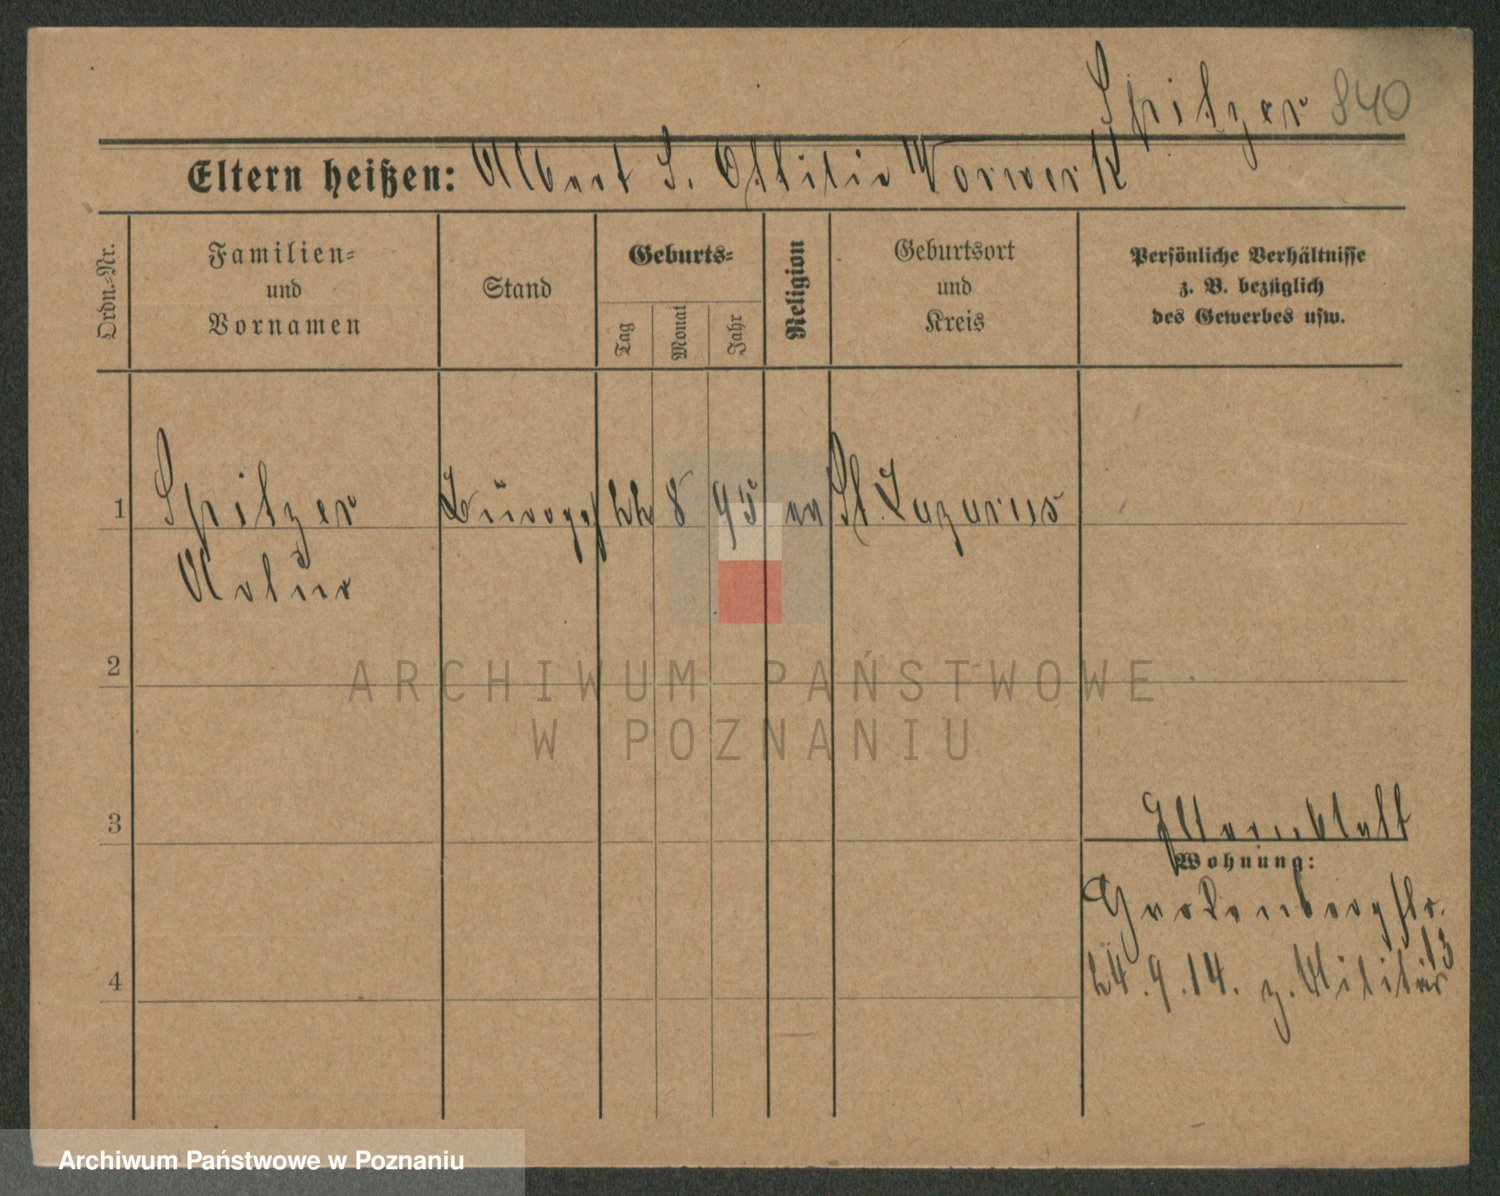 Spitzer 840
Eltern heißen: Albert S. Ottilie Vorwerk
Ordn.-Nr.
Familien-
und
Vornamen
Stand
Geburts-
Tag
Monat
Jahr
Religion
Geburtsort
und
Kreis
Persönliche Verhältnisse
z. B. bezüglich
des Gewerbes usw.
1 Spitzer Bürogeh 22 8 95 ev St. Lazarus
Artur
2
ARCHIWUM PAŃSTWOWE
W POZNANIU
3
Wohnung:
4
24.9.14. z. Militär
13
Archiwum Państwowe w Poznaniu